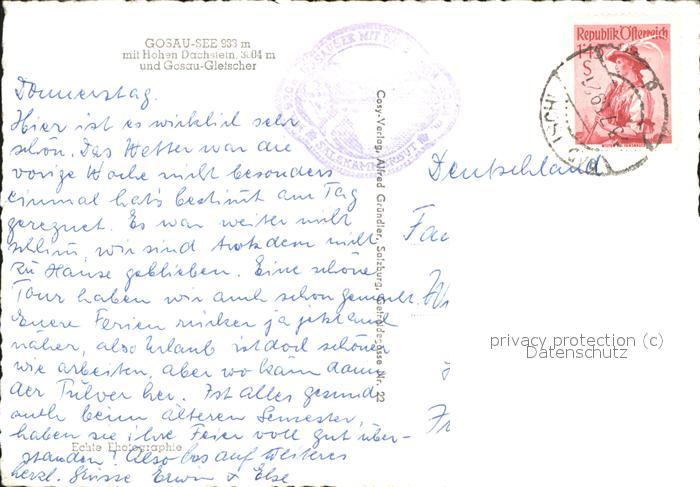 GOSAU-SEE 933 m
mit Hohen Dachstein, 3004 m
und Gosau-Gletscher
Donnerstag.
Hier ist es wirklich sehr
schön. Das Wetter war die
vorige Woche nicht besonders
einmal hat's bestimt am Tag
geregnet. Es war weiter nicht
schlimm, wir sind trotzdem nicht
zu Hause geblieben. Eine schöne
Tour haben wir auch schon gemacht.
Euere Ferien rücken ja jetzt auch
näher, also Urlaub ist doch schöner
wie arbeiten, aber wo käm dann
der Pulver her. Ist alles gesund
auch beim älteren Semester,
haben sie ihre Feier voll gut über-
standen? Also bis auf Weiteres
herzl. Grüsse Erwin & Else
Echte Photographie
Cosy-Verlag, Alfred Gründler, Salzburg, Getreidegasse Nr. 22
SALZKAMMERGUT
Republik Österreich
1 S
BAD ISCHL
Deutschland
Fa
Fr
privacy protection (c)
Datenschutz